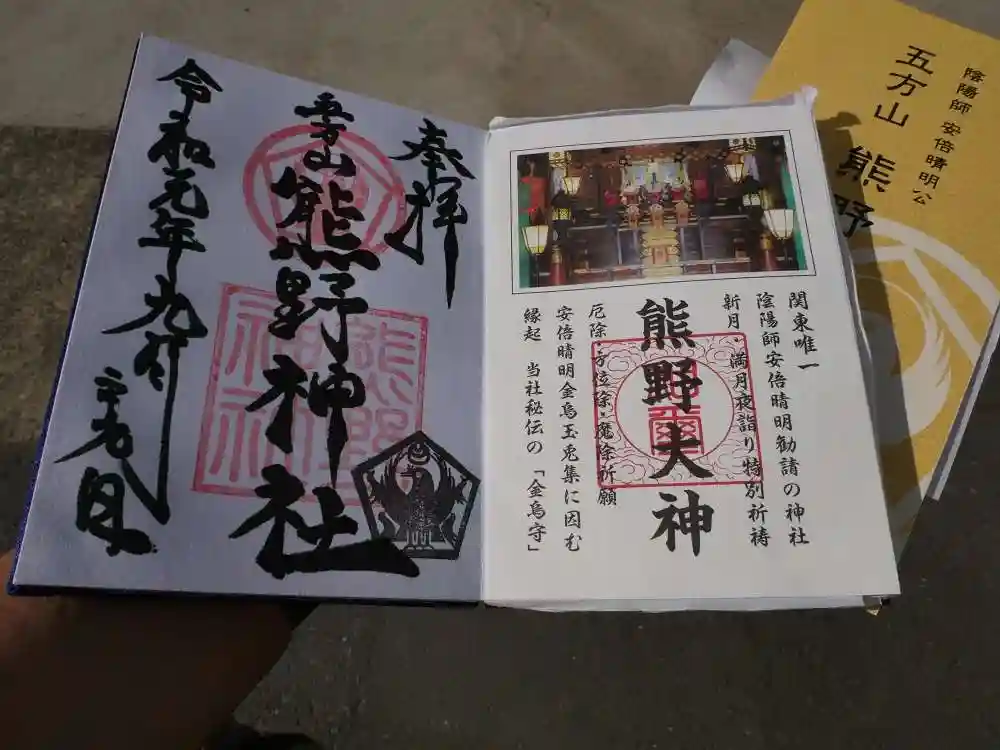 奉拝
五方山
熊野神社
令和元年九月
二九日
熊野
神社
関東唯一
陰陽師安倍晴明勧請の神社
新月・満月夜詣り特別祈祷
熊野大神
厄除・方位除・魔除祈願
安倍晴明金烏玉兎集に因む
縁起 当社秘伝の「金烏守」
陰陽師 安倍晴明公
五方山 熊野